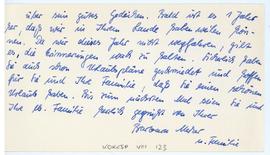 über sein gutes Gedeihen. Bald ist es 1 Jahr
her, daß wir in Ihrem Lande haben weilen kön-
nen. Da wir dieses Jahr nicht wegfahren, gilt
es, die Erinnerungen wach zu halten. Sicherlich haben
Sie auch schon Urlaubspläne geschmiedet und hoffen
für Sie und Ihre Familie, daß Sie einen schönen
Urlaub haben. Bis zum nächsten Mal seien Sie und
Ihre lb. Familie herzlich gegrüßt von Ihrer
Barbara
u. Familie
VIII 123